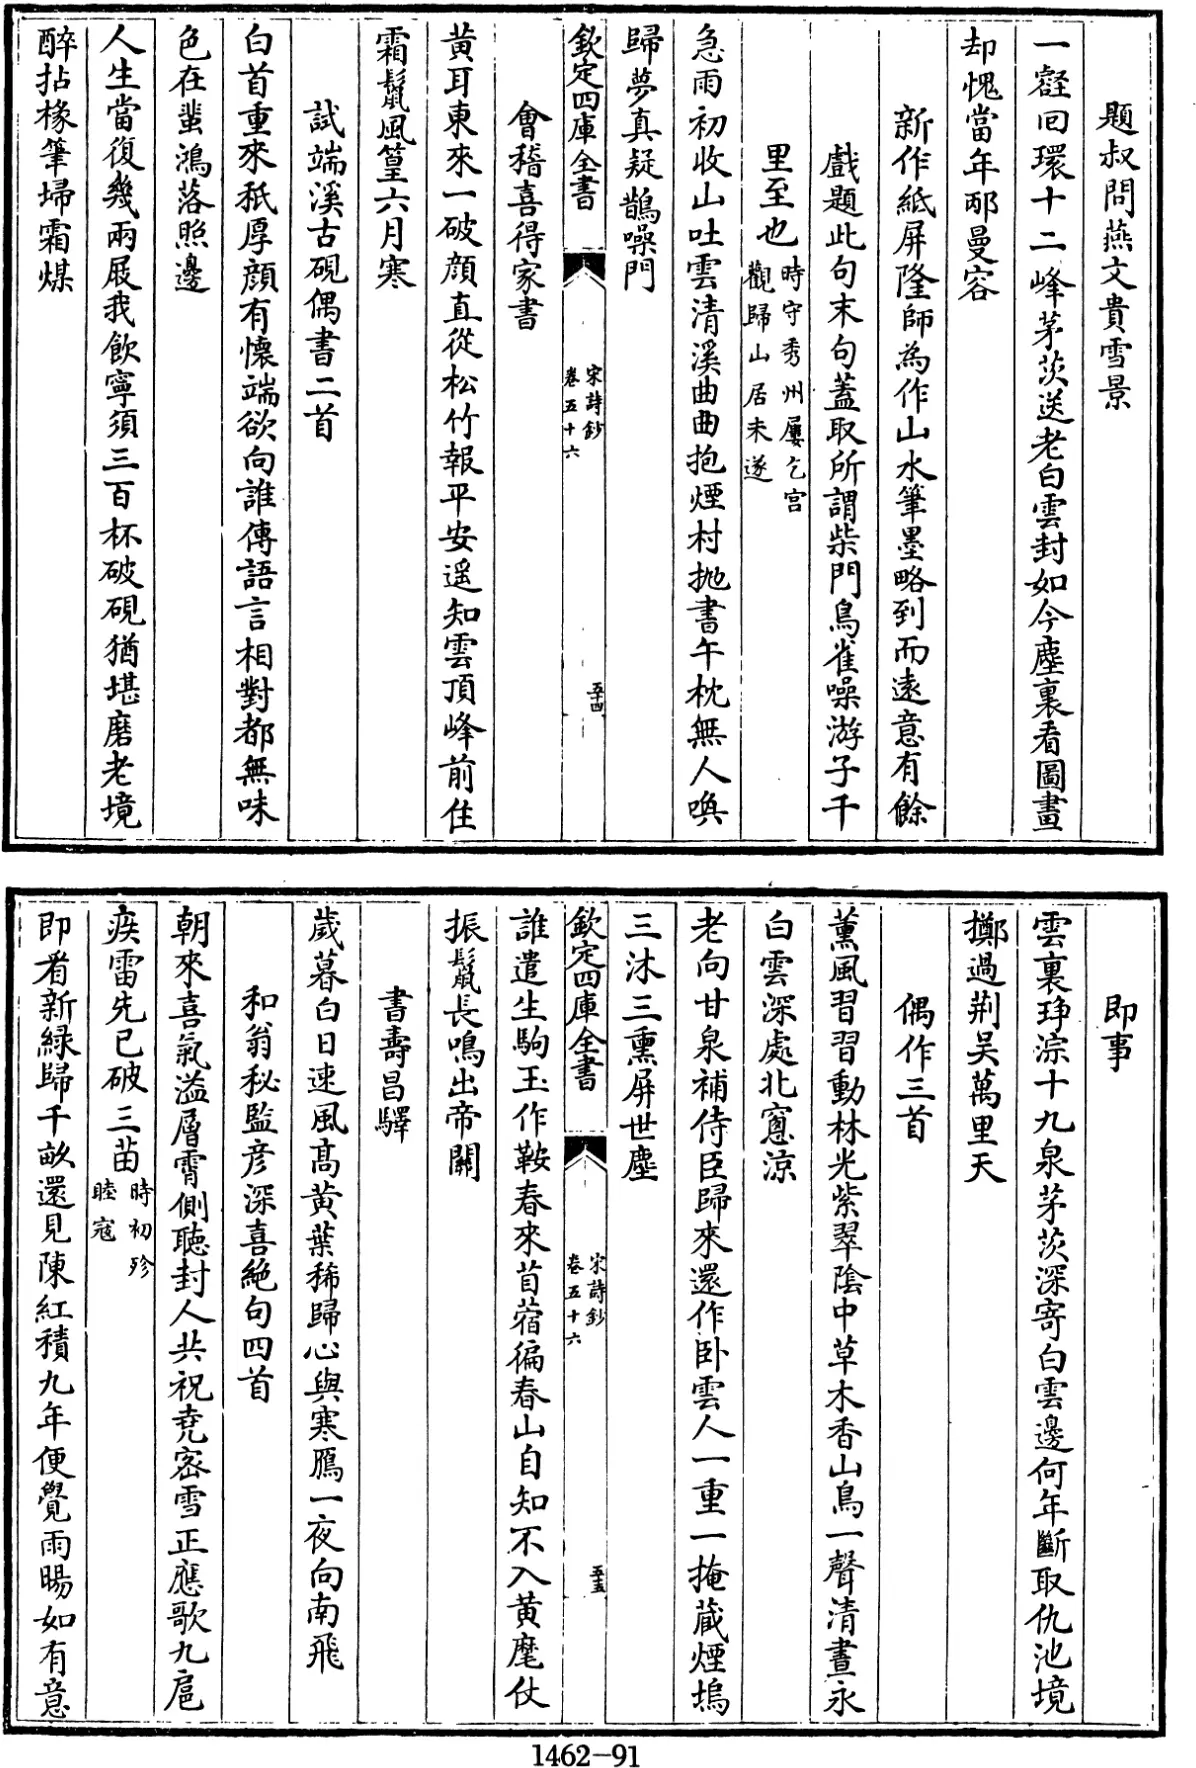 題叔問燕文貴雪景
一壑回環十二峰茅茨送老白雲封如今塵裏看圖畫
却愧當年邴曼容
新作紙屏隆師為作山水筆墨略到而遠意有餘
戲題此句末句蓋取所謂柴門鳥雀噪游子千
里至也時守秀州屢乞宫觀歸山居未遂
急雨初收山吐雲清溪曲曲抱煙村抛書午枕無人喚
歸夢真疑鵲噪門
欽定四庫全書
宋詩鈔
卷五十六
五十四
會稽喜得家書
黄耳東來一破顔直從松竹報平安遥知雲頂峰前住
霜鬣風篁六月寒
試端溪古硯偶書二首
白首重來秪厚顔有懷端欲向誰傳語言相對都無味
色在蜚鴻落照邊
人生當復幾兩屐我飲寧須三百杯破硯猶堪磨老境
醉拈椽筆埽霜煤
即事
雲裏琤淙十九泉茅茨深寄白雲邊何年斷取仇池境
擲過荆吴萬里天
偶作三首
薰風習習動林光紫翠陰中草木香山鳥一聲清晝永
白雲深處北窻涼
老向甘泉補侍臣歸來還作卧雲人一重一掩蔵煙塢
三沐三熏屏世塵
欽定四庫全書
宋詩鈔
卷五十六
五十五
誰遣生駒玉作鞍春來苜蓿徧春山自知不入黄麾仗
振鬣長鳴出帝關
書壽昌驛
歲暮白日速風髙黄葉稀歸心與寒鴈一夜向南飛
和翁秘監彦深喜絶句四首
朝來喜氣溢層霄側聴封人共祝堯宻雪正應歌九扈
疾雷先已破三苗時初殄睦寇
即看新緑歸千畝還見陳紅積九年便覺雨暘如有意
1462-91